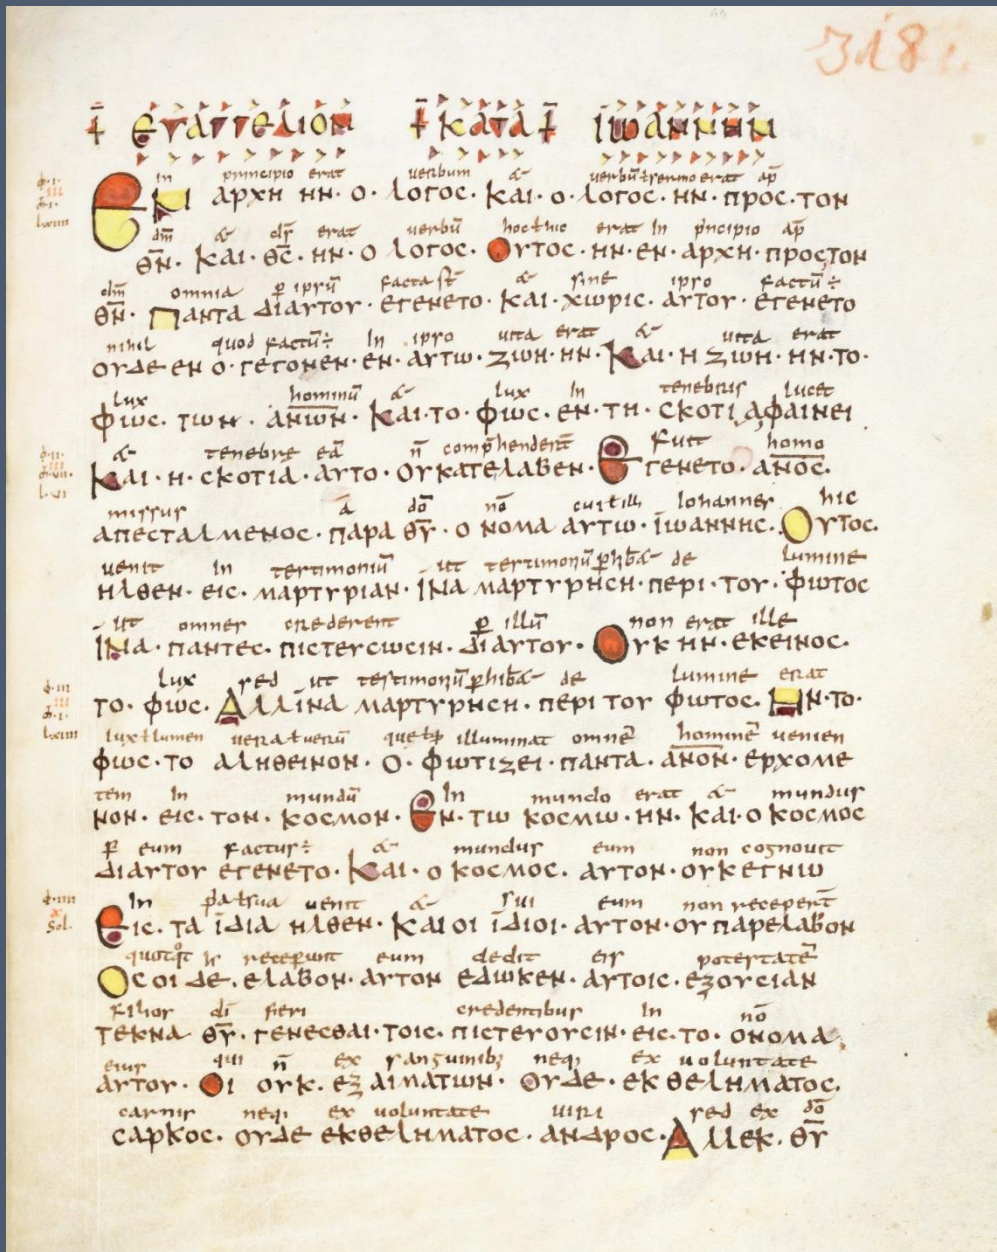 318
ΕΥΑΓΓΕΛΙΟΝ ΚΑΤΑ ΙΩΑΝΝΗΝ
In principio erat uerbum & uerbū ł sermo erat ap̄
ΕΝ ΑΡΧΗ ΗΝ· Ο· ΛΟΓΟС· ΚΑΙ· Ο· ΛΟΓΟС· ΗΝ· ΠΡΟС· ΤΟΝ
dm̄ & ds̄ erat uerbū hoc ł hic erat In principio ap̄
Θ̅Ν̅· ΚΑΙ· Θ̅С̅· ΗΝ· Ο ΛΟΓΟС· ΟΥΤΟС· ΗΝ· ΕΝ· ΑΡΧΗ· ΠΡΟС ΤΟΝ
dm̄ omnia ꝑ ipsū facta st̄ & sine ipso factū÷
Θ̅Ν̅· ΠΑΝΤΑ ΔΙΑΥΤΟΥ· ΕΓΕΝΕΤΟ· ΚΑΙ· ΧΩΡΙС· ΑΥΤΟΥ· ΕΓΕΝΕΤΟ
nihil quod factū÷ In ipso uita erat & uita erat
ΟΥΔΕ ΕΝ Ο· ΓΕΓΟΝΕΝ· ΕΝ· ΑΥΤΩ· ΖΩΗ· ΗΝ· ΚΑΙ· Η ΖΩΗ· ΗΝ· ΤΟ·
lux hominū & lux In tenebris lucet
ΦΩС· ΤΩΝ· Α̅Ν̅Ω̅Ν̅· ΚΑΙ· ΤΟ· ΦΩС· ΕΝ· ΤΗ· СΚΟΤΙΑ ΦΑΙΝΕΙ
& tenebre eā n̄ comp̄hendert̄ Fuit homo
ΚΑΙ· Η· СΚΟΤΙΑ· ΑΥΤΟ· ΟΥΚΑΤΕΛΑΒΕΝ· ΕΓΕΝΕΤΟ· Α̅Ν̅Ο̅С̅·
missus ā dō nō cui ł illi Iohannes hic
ΑΠΕСΤΑΛΜΕΝΟС· ΠΑΡΑ Θ̅Υ̅· Ο ΝΟΜΑ ΑΥΤΩ· ΙΩΑΝΝΗС· ΟΥΤΟС·
uenit In testimoniū ut testimoniū ꝑhib& de lumine
ΗΛΘΕΝ· ΕΙС· ΜΑΡΤΥΡΙΑΝ· ΙΝΑ ΜΑΡΤΥΡΗСΗ· ΠΕΡΙ· ΤΟΥ· ΦΩΤΟС
ut omnes crederent ꝑ illū non erat ille
ΙΝΑ· ΠΑΝΤΕС· ΠΙСΤΕΥСΩСΙΝ· ΔΙΑΥΤΟΥ· ΟΥΚ ΗΝ· ΕΚΕΙΝΟС·
lux sed ut testimoniū ꝑhib& de lumine erat
ΤΟ· ΦΩС· ΑΛΛΙΝΑ ΜΑΡΤΥΡΗСΗ· ΠΕΡΙ ΤΟΥ ΦΩΤΟС· ΗΝ· ΤΟ·
lux ł lumen uera ł uerū illuminat omnē hominē uenien
ΦΩС· ΤΟ ΑΛΗΘΕΙΝΟΝ· Ο· ΦΩΤΙΖΕΙ· ΠΑΝΤΑ· Α̅Ν̅Ο̅Ν̅· ΕΡΧΟΜΕ
tem In mundū In mundo erat & mundus
ΝΟΝ· ΕΙС· ΤΟΝ· ΚΟСΜΟΝ· ΕΝ· ΤΩ ΚΟСΜΩ· ΗΝ· ΚΑΙ· Ο ΚΟСΜΟС
ꝑ eum factus÷ & mundus eum non cognouit
ΔΙΑΥΤΟΥ ΕΓΕΝΕΤΟ· ΚΑΙ· Ο ΚΟСΜΟС· ΑΥΤΟΝ· ΟΥΚ ΕΓΝΩ
In uenit & sui eum non recepert̄
ΕΙС· ΤΑ ΙΔΙΑ ΗΛΘΕΝ· ΚΑΙ ΟΙ ΙΔΙΟΙ· ΑΥΤΟΝ· ΟΥ ΠΑΡΕΛΑΒΟΝ
receperunt eum dedit eis potestatē
ΟСΟΙ ΔΕ· ΕΛΑΒΟΝ· ΑΥΤΟΝ ΕΔΩΚΕΝ· ΑΥΤΟΙС· ΕΞΟΥСΙΑΝ
filios dī fieri credentibus In nō
ΤΕΚΝΑ Θ̅Υ̅· ΓΕΝΕСΘΑΙ· ΤΟΙС· ΠΙСΤΕΥΟΥСΙΝ· ΕΙС· ΤΟ· ΟΝΟΜΑ
eius qui n̄ ex sanguinib; neq; ex uoluntate
ΑΥΤΟΥ· ΟΙ ΟΥΚ· ΕΞ ΑΙΜΑΤΩΝ· ΟΥΔΕ· ΕΚ ΘΕΛΗΜΑΤΟС·
carnis neq; ex uoluntate uiri sed ex dō
САΡΚΟС· ΟΥΔΕ ΕΚΘΕΛΗΜΑΤΟС· ΑΝΔΡΟС· ΑΛΛΕΚ· Θ̅Υ̅